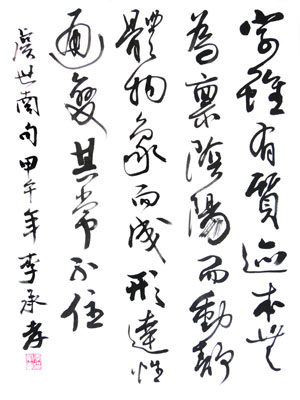 字雖有質迹本無
為稟陰陽而動靜
體物象而成形達性
通變其常不住
虞世南句甲午年李承孝